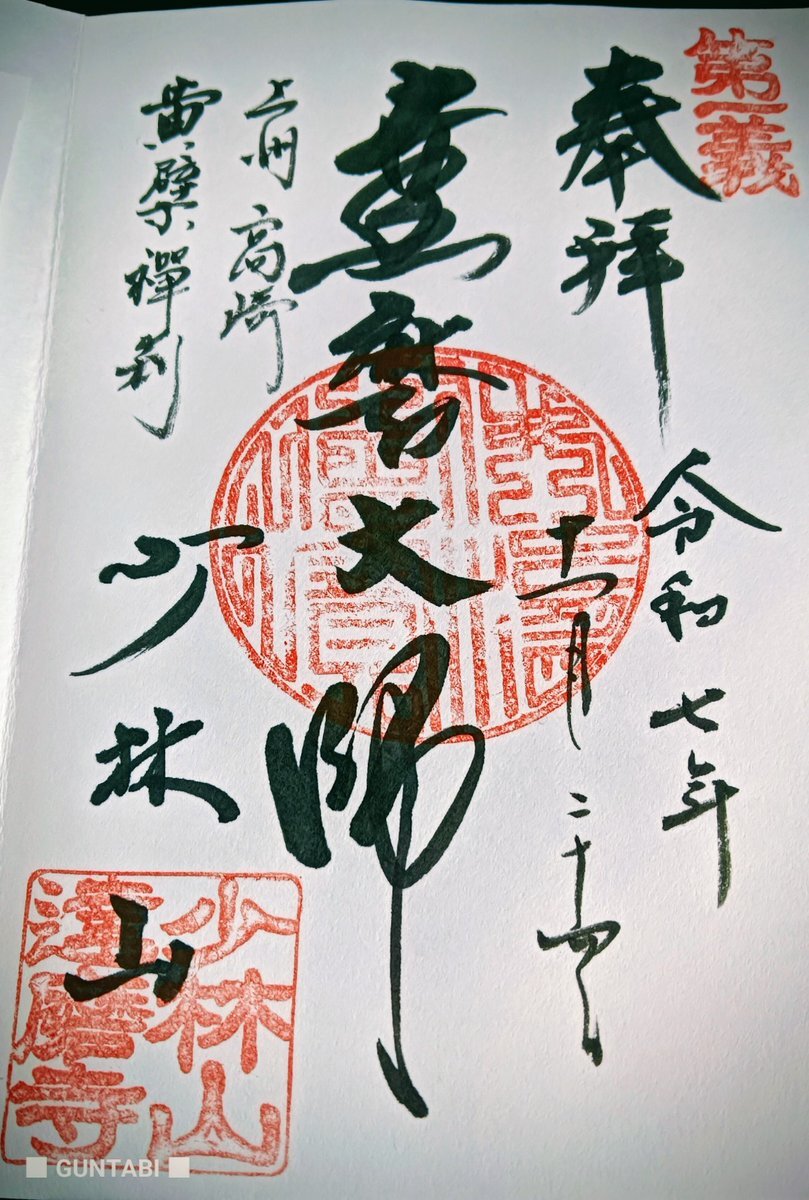 第一義
奉拝
令和 七年
十一月 二十四日
達磨大師
上州 高崎
黄檗禪刹
少林山
少林山
達磨寺
GUNTABI